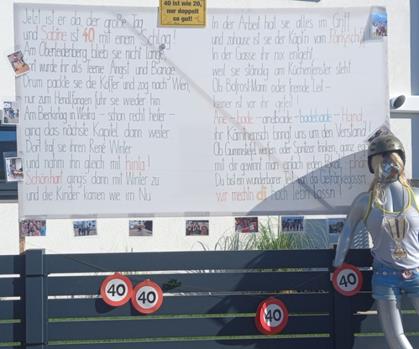 40 ist wie 20,
nur doppelt
so gut!
Jetzt ist er da der große Tag
und Sabine ist 40 mit einem Schlag!
Am Oberleitenberg blieb sie nicht lange,
dort wurde ihr als Teenie Angst und Bange
Drum packte sie die Koffer und zog nach Wien,
nur zum Handfangen fuhr sie wieder hin
Am Berktrag in Weitra - schon recht heiter -
ging das nächste Kapitel dann weiter.
Dort traf sie ihren René Winter
und nahm ihn gleich mit hinta!
Schönhart ging's dann mit Winter zu
und die Kinder kamen wie im Nu
In der Arbeit hat sie alles im Griff
und zuhause ist sie der Käptn vom
In der Gasse ihr nix entgeht
weil sie ständig am Küchenfenster steht
Ob Bofrost-Mann oder fremde Leit -
keiner ist vor ihr gefeit!
bade - andbade - badebade -
ihr bringt uns um den Verstand!
Ob Gummistiefl wandern oder Spritzer trinken, ganz egal
mit dir gewinnt man
Du bist ein wunderbarer
wir mecht'n di no lebn lossn!
40
40
40
40